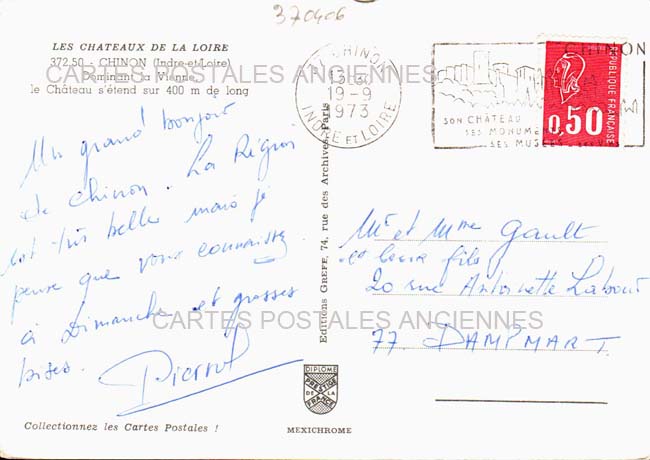 370406
LES CHATEAUX DE LA LOIRE
372.50 - CHINON (Indre-et-Loire)
Dominant la Vienne,
le Château s'étend sur 400 m de long
CARTES POSTALES ANCIENNES
CHINON
19-9
1973
INDRE ET LOIRE
CHINON
SON CHÂTEAU
SES MONUME
SES MUSÉES
0,50
REPUBLIQUE FRANÇAISE
Un grand bonjour
de Chinon. La Région
est très belle mais je
pense que vous connaissez
à Dimanche et grosses
bises.
Pierrot
Editions GREFF, 74, rue des Archives - Paris
Mr et Mme Gault
et leur fils
20 rue Antoinette
77 DAMPMART.
CARTES POSTALES ANCIENNES
DIPLOME
PRESTIGE
DE LA
FRANCE
Collectionnez les Cartes Postales !
MEXICHROME